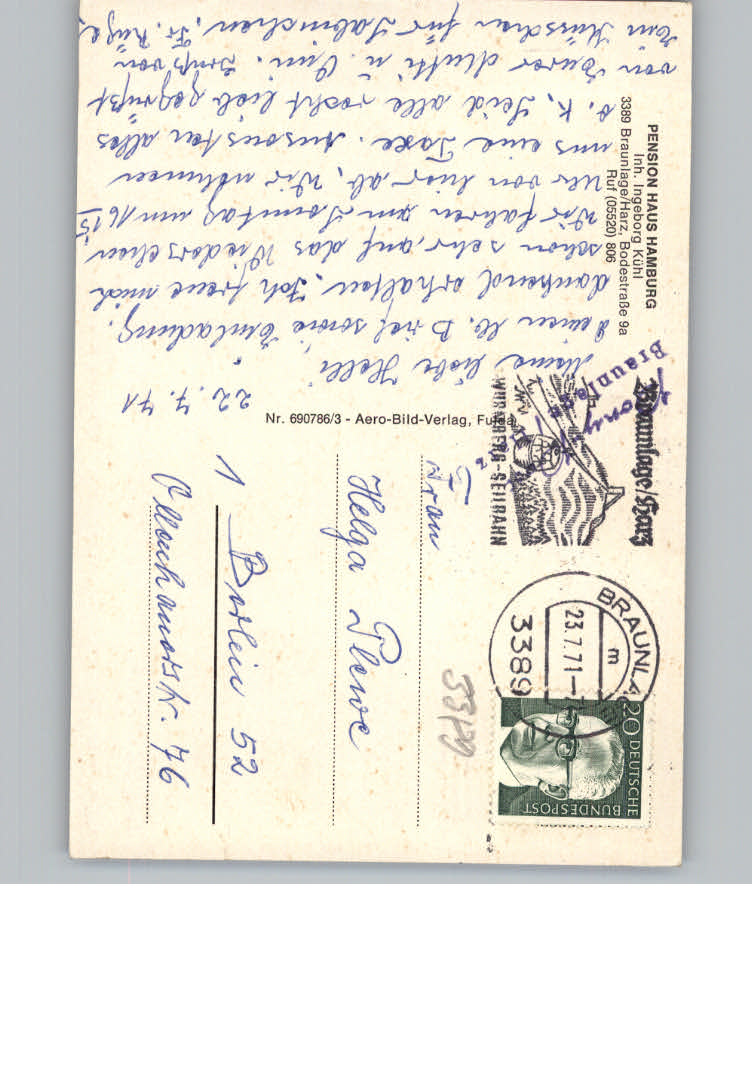 PENSION HAUS HAMBURG
Inh. Ingeborg Kühl
3389 Braunlage/Harz, Bodestraße 9a
Ruf (05520) 806
22.7.71
Meine liebe Helli,
Deinen lb. Brief sowie Einladung.
dankend erhalten. Ich freue mich
schon sehr auf das Wiedersehen
Wir fahren am Sonntag um 16 15
Uhr von hier ab, Wir nehmen
uns eine Taxe. Ansonsten alles
o. K. Seid alle recht lieb gegrüßt
von Eurer Mutti u. Omi. Gruß von
Ein Küsschen für Sabinchen, Fr.
Nr. 690786/3 - Aero-Bild-Verlag, Fulda
Braunlage/Harz
WURMBERG-SEILBAHN
Braunlage
BRAUNLA
23.7.71-
m
3389
20 DEUTSCHE
BUNDESPOST
53/29
Frau
Helga Plewe
1 Berlin 52
Ollenhauerstr. 76